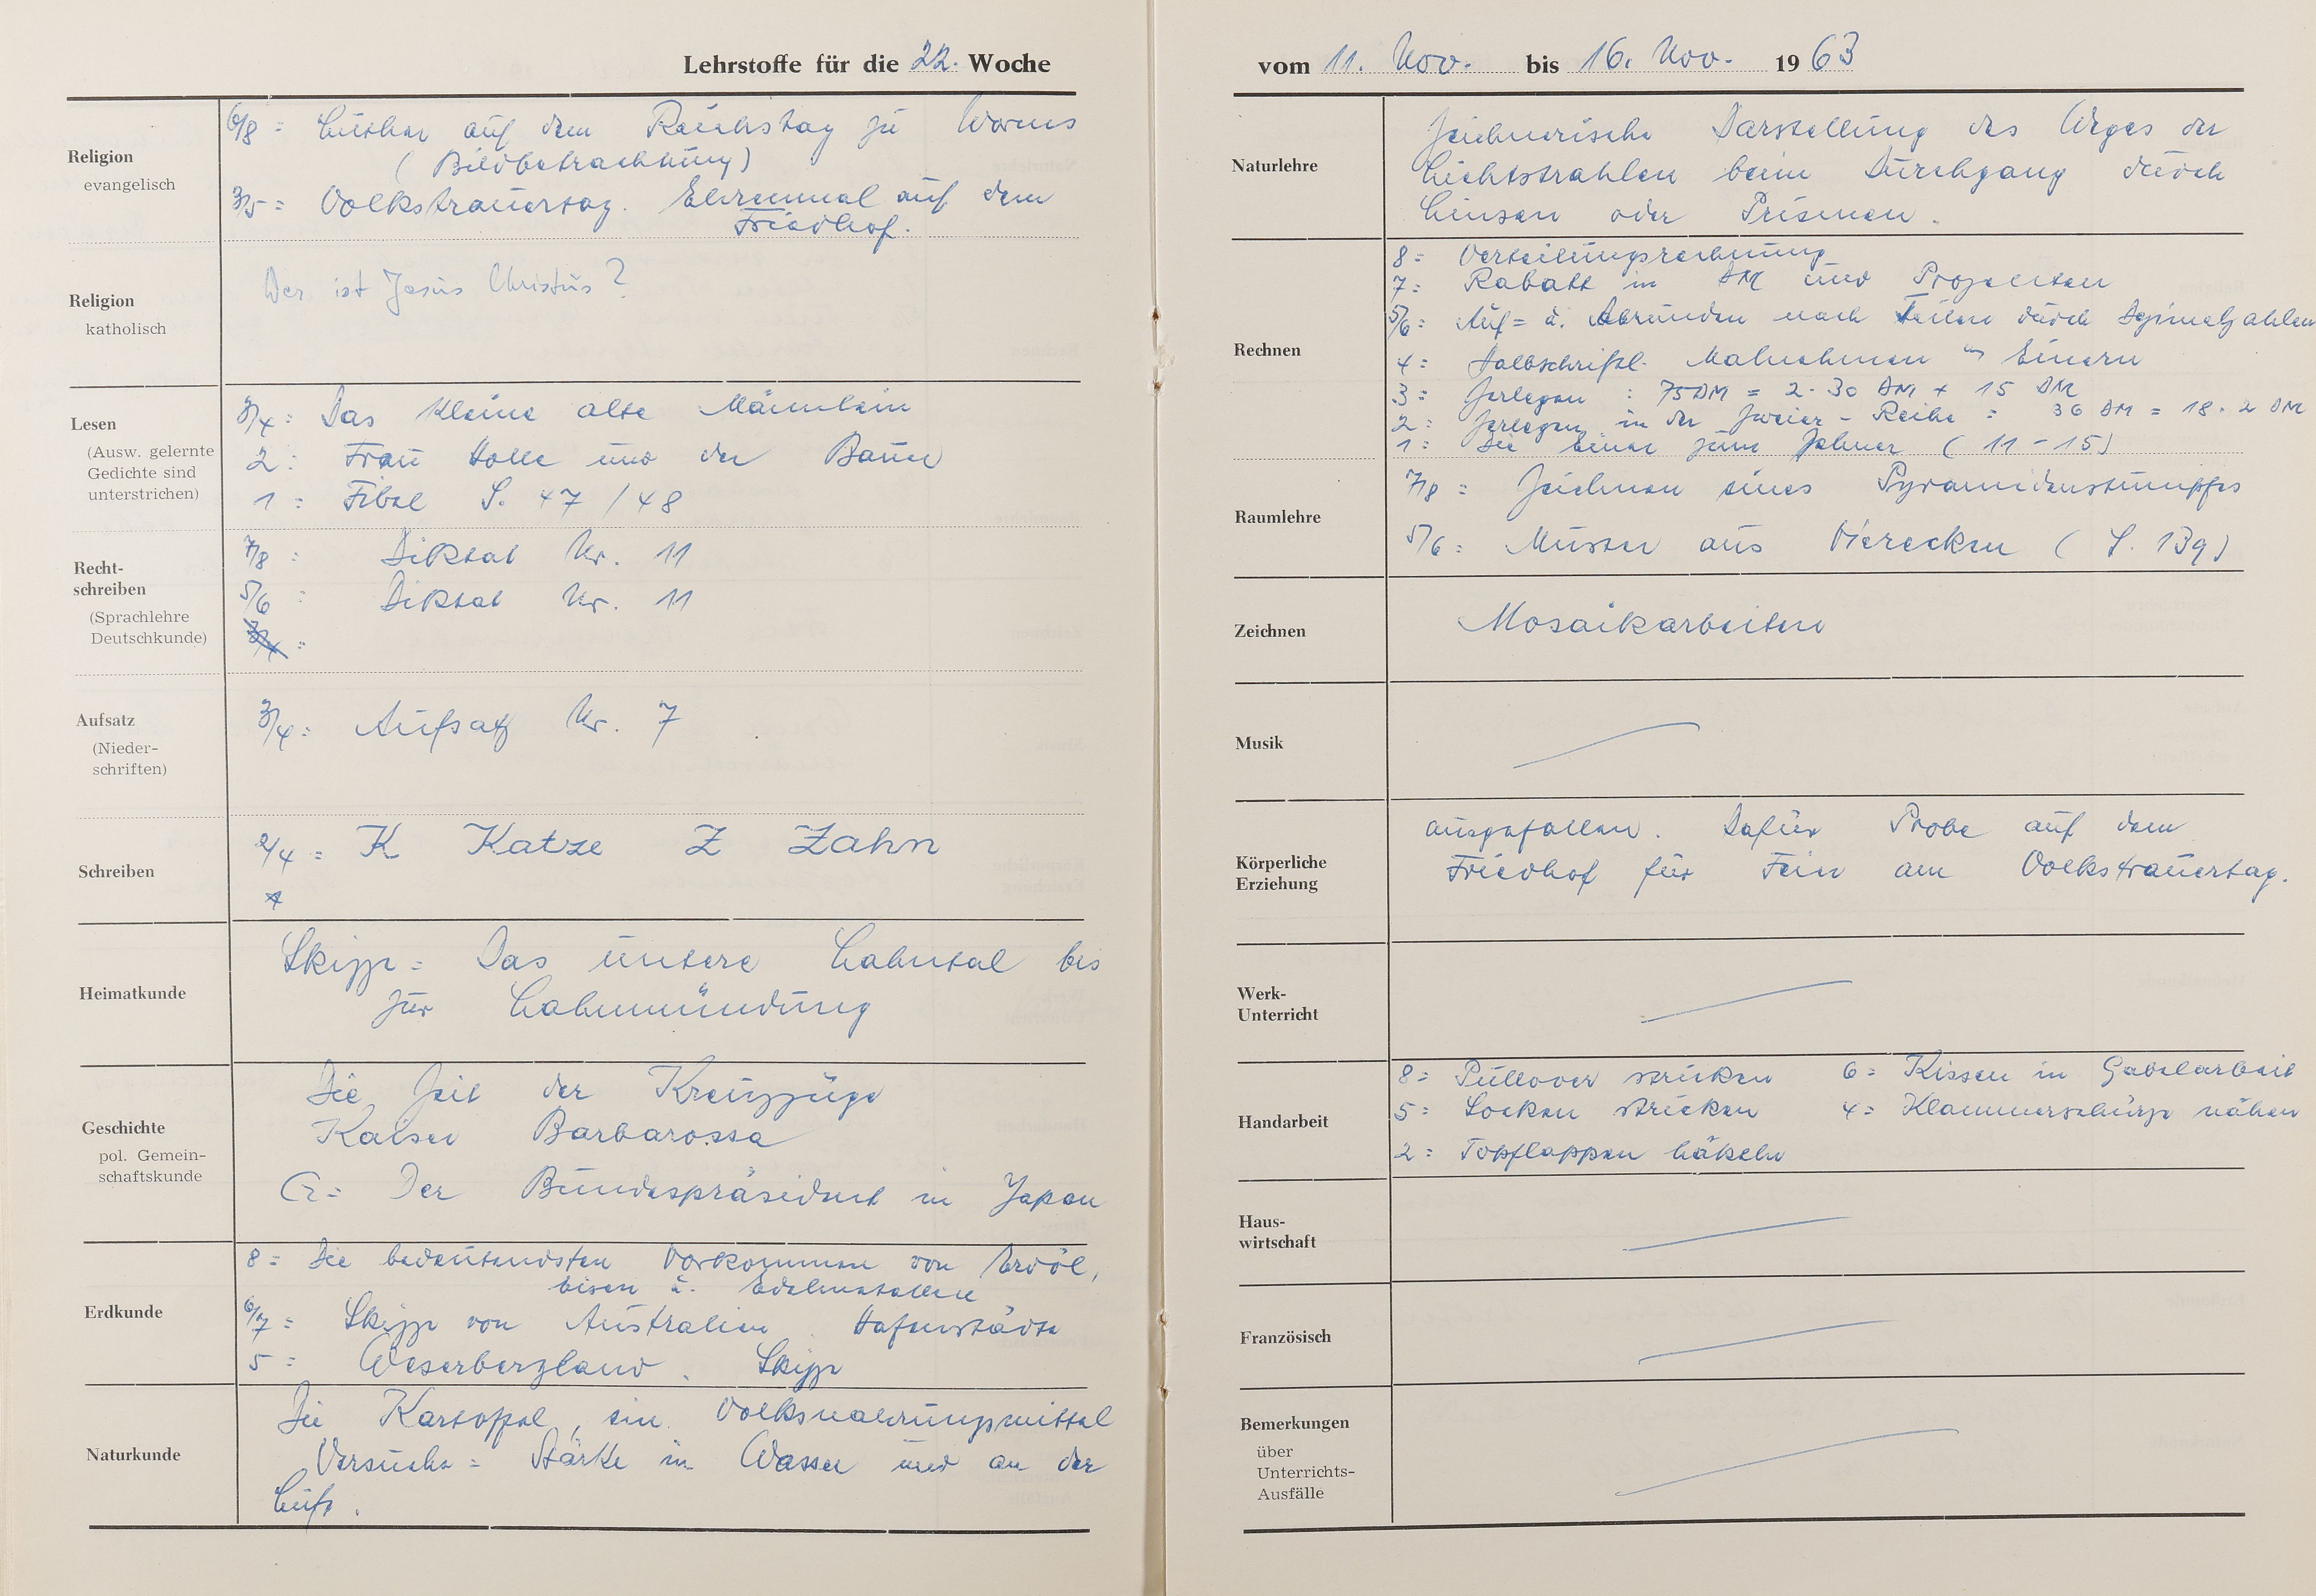 Lehrstoffe für die 22. Woche
Religion
evangelisch
6/8 = Luther auf dem Reichstag zu Worms
(Bildbetrachtung)
3/5 = Volkstrauertag. Ehrenmal auf dem
Friedhof.
Religion
katholisch
Wer ist Jesus Christus?
Lesen
(Ausw. gelernte
Gedichte sind
unterstrichen)
3/4: Das kleine alte Männlein
2: Frau Holle und der Bauer
1: Fibel S. 47/48
Recht-
schreiben
(Sprachlehre
Deutschkunde)
7/8: Diktat Nr. 11
5/6: Diktat Nr. 11
3/4:
Aufsatz
(Nieder-
schriften)
3/4: Aufsatz Nr. 7
Schreiben
2/4 = K Katze Z Zahn
Heimatkunde
Skizze = Das untere Lahntal bis
zur Lahnmündung
Geschichte
pol. Gemein-
schaftskunde
Die Zeit der Kreuzzüge
Kaiser Barbarossa
G = Der Bundespräsident in Japan
Erdkunde
8 = Die bedeutendsten Vorkommen von Erdöl,
Eisen u. Edelmetallen
6/7 = Skizze von Australien. Hafenstädte
5 = Weserbergland. Skizze
Naturkunde
Die Kartoffel, ein Volksnahrungsmittel
Versuche = Stärke in Wasser und an der
Luft.
vom 11. Nov. bis 16. Nov. 1963
Naturlehre
Zeichnerische Darstellung des Weges der
Lichtstrahlen beim Durchgang durch
Linsen oder Prismen.
Rechnen
8 = Verteilungsrechnung
7: Rabatt in DM und Prozenten
5/6: Auf= u. Abrunden nach Teilen durch Dezimalzahlen
4: Halbschriftl. Malnehmen Einern
3: Zerlegen : 75 DM = 2 · 30 DM + 15 DM
2: Zerlegen in der Zweier-Reihe = 36 DM = 18 · 2 DM
1: Die Einer zum Zehner (11-15)
Raumlehre
7/8 = Zeichnen eines Pyramidenstumpfes
5/6: Muster aus Vierecken (S. 139)
Zeichnen
Mosaikarbeiten
Musik
Körperliche
Erziehung
ausgefallen. Dafür Probe auf dem
Friedhof für Feier am Volkstrauertag.
Werk-
Unterricht
Handarbeit
8 = Pullover stricken 6 = Kissen in Gabelarbeit
5: Socken stricken 4 = Klammerschürze nähen
2 = Topflappen häkeln
Haus-
wirtschaft
Französisch
Bemerkungen
über
Unterrichts-
Ausfälle